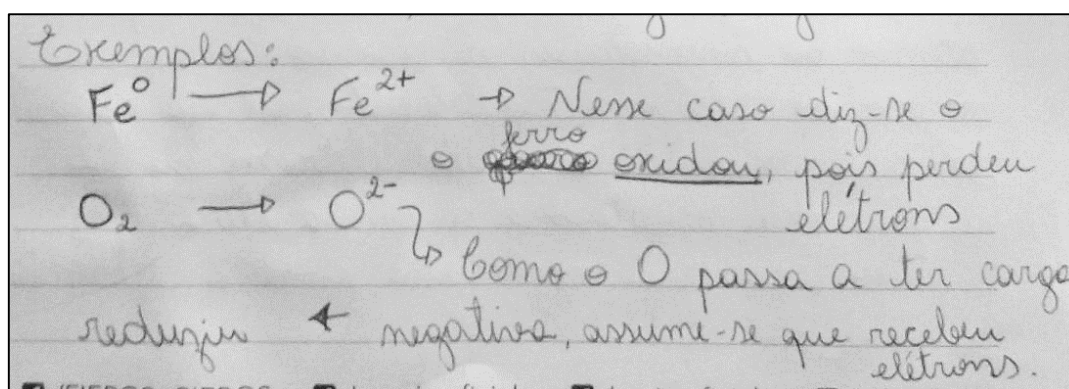 Exemplos:
Fe⁰ → Fe²⁺ → Nesse caso diz-se o
o ferro oxidou, pois perdeu
O₂ → O²⁻ elétrons
↳ Como o O passa a ter carga
reduziu ← negativa, assume-se que recebeu
elétrons.